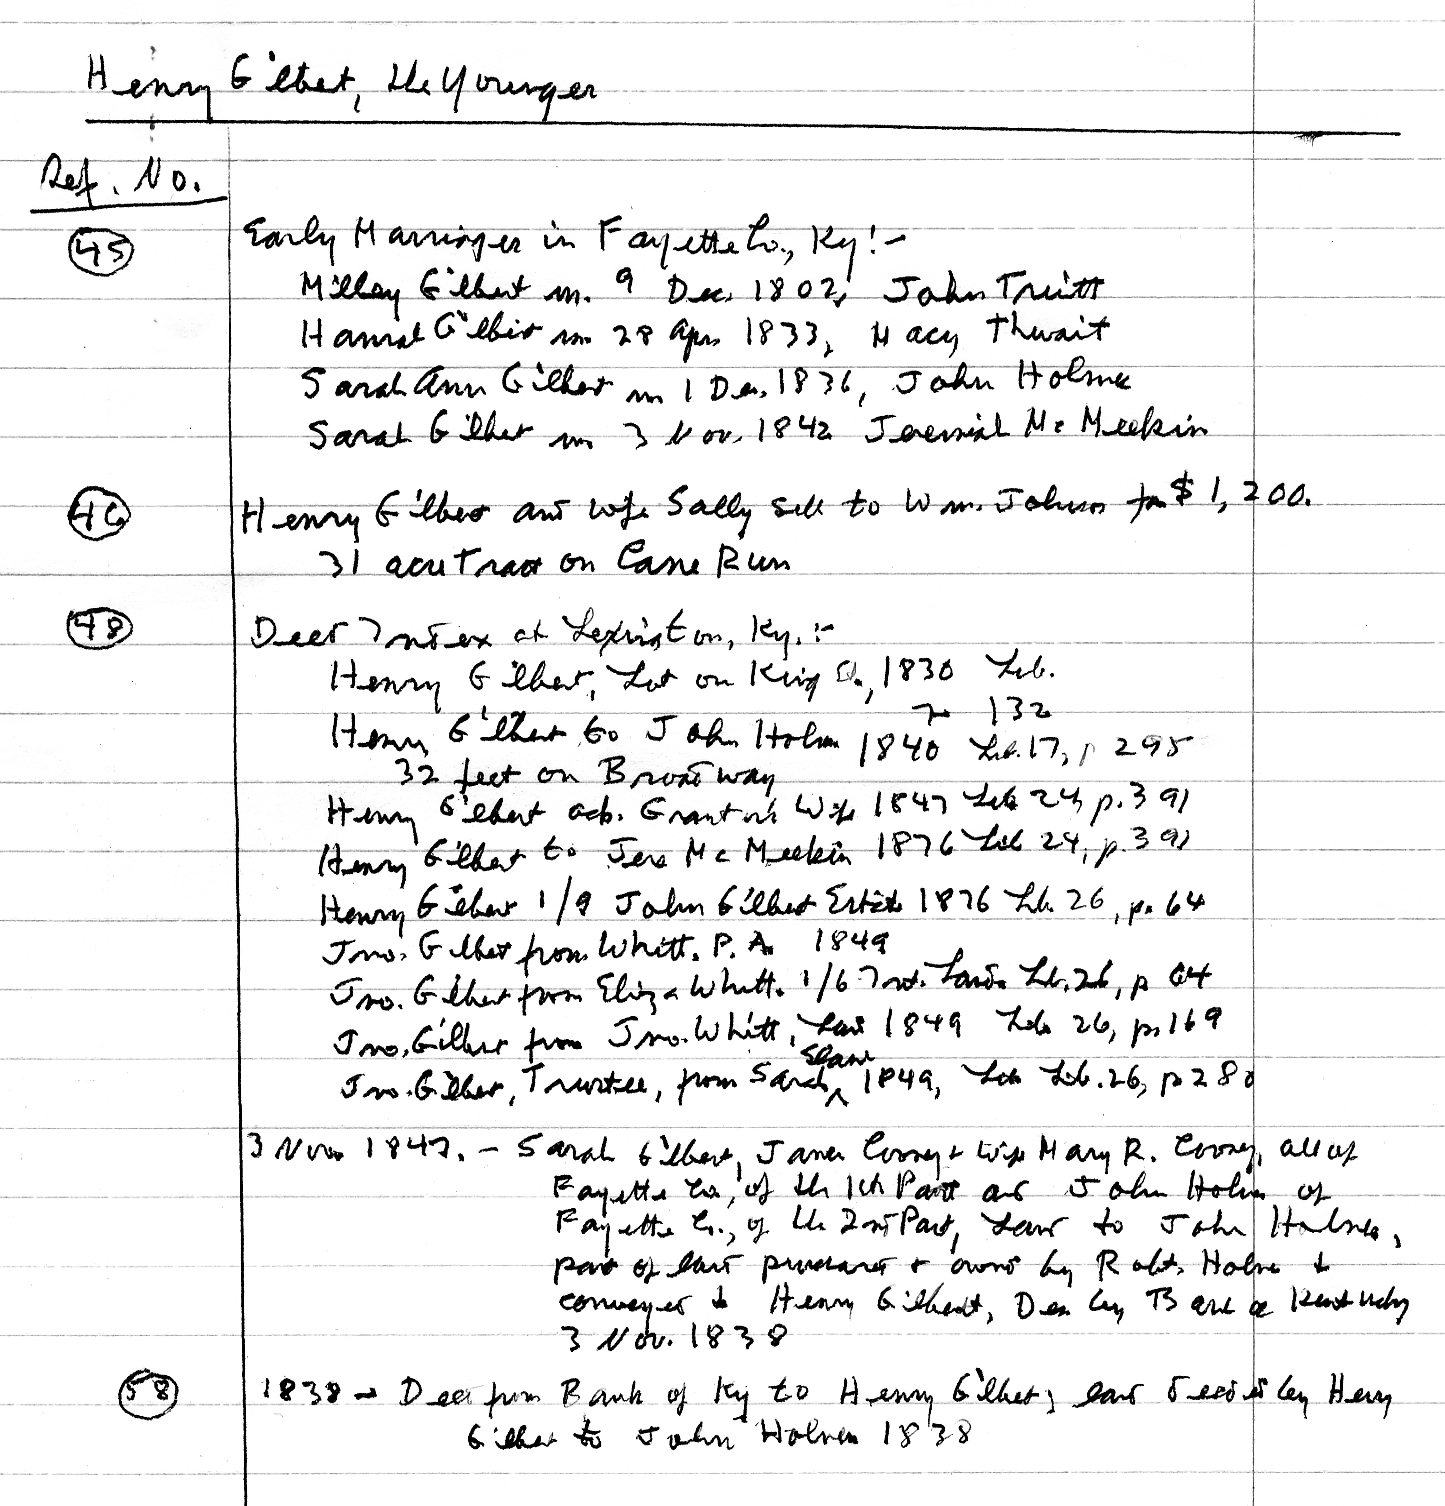 Henry Gilbert, the Younger
Ref. No.
45 Early Marriages in Fayette Co., Ky:-
Milley Gilbert m. 9 Dec. 1802, John Truitt
Gilbert m 28 Apr. 1833, Macy Thwait
Sarah Ann Gilbert m 1 Dec. 1836, John Holmes
Sarah Gilbert m 3 Nov. 1842 Jeremiah McMeekin
46 Henry Gilbert and wife Sally sell to Wm. Johnson for $1,200.
31 acre Tract on Cane Run
48 Deed Index at Lexington, Ky.:-
Henry Gilbert, Lot on King St., 1830 Lib.
7 132
Henry Gilbert to John Holmes 1840 Lib. 17, p 295
32 feet on Broadway
Henry Gilbert Grantor & Wife 1847 Lib 24, p. 391
Henry Gilbert to Jere McMeekin 1876 Lib 24, p. 391
Henry Gilbert 1/9 John Gilbert Estate 1876 Lib. 26, p. 64
Jno. Gilbert from Whitt. P.A. 1849
Jno. Gilbert from Eliza Whitt. 1/6 Int. Land Lib. 26, p 64
Jno. Gilbert from Jno. Whitt, Land 1849 Lib 26, p. 169
Jno. Gilbert, Trustee, from Sarah Slane 1849, Lib. 26, p 280
3 Nov. 1847. - Sarah Gilbert, James Corney & wife Mary R. Corney, all of
Fayette Co., of the 1st Part and John Holmes of
Fayette Co., of the 2nd Part, Land to John Holmes,
part of land purchased & owned by Robt. Holmes &
conveyed to Henry Gilbert, Dec by Bank of Kentucky
3 Nov. 1838
58 1838 - Deed from Bank of Ky to Henry Gilbert; land deeded by Henry
Gilbert to John Holmes 1838